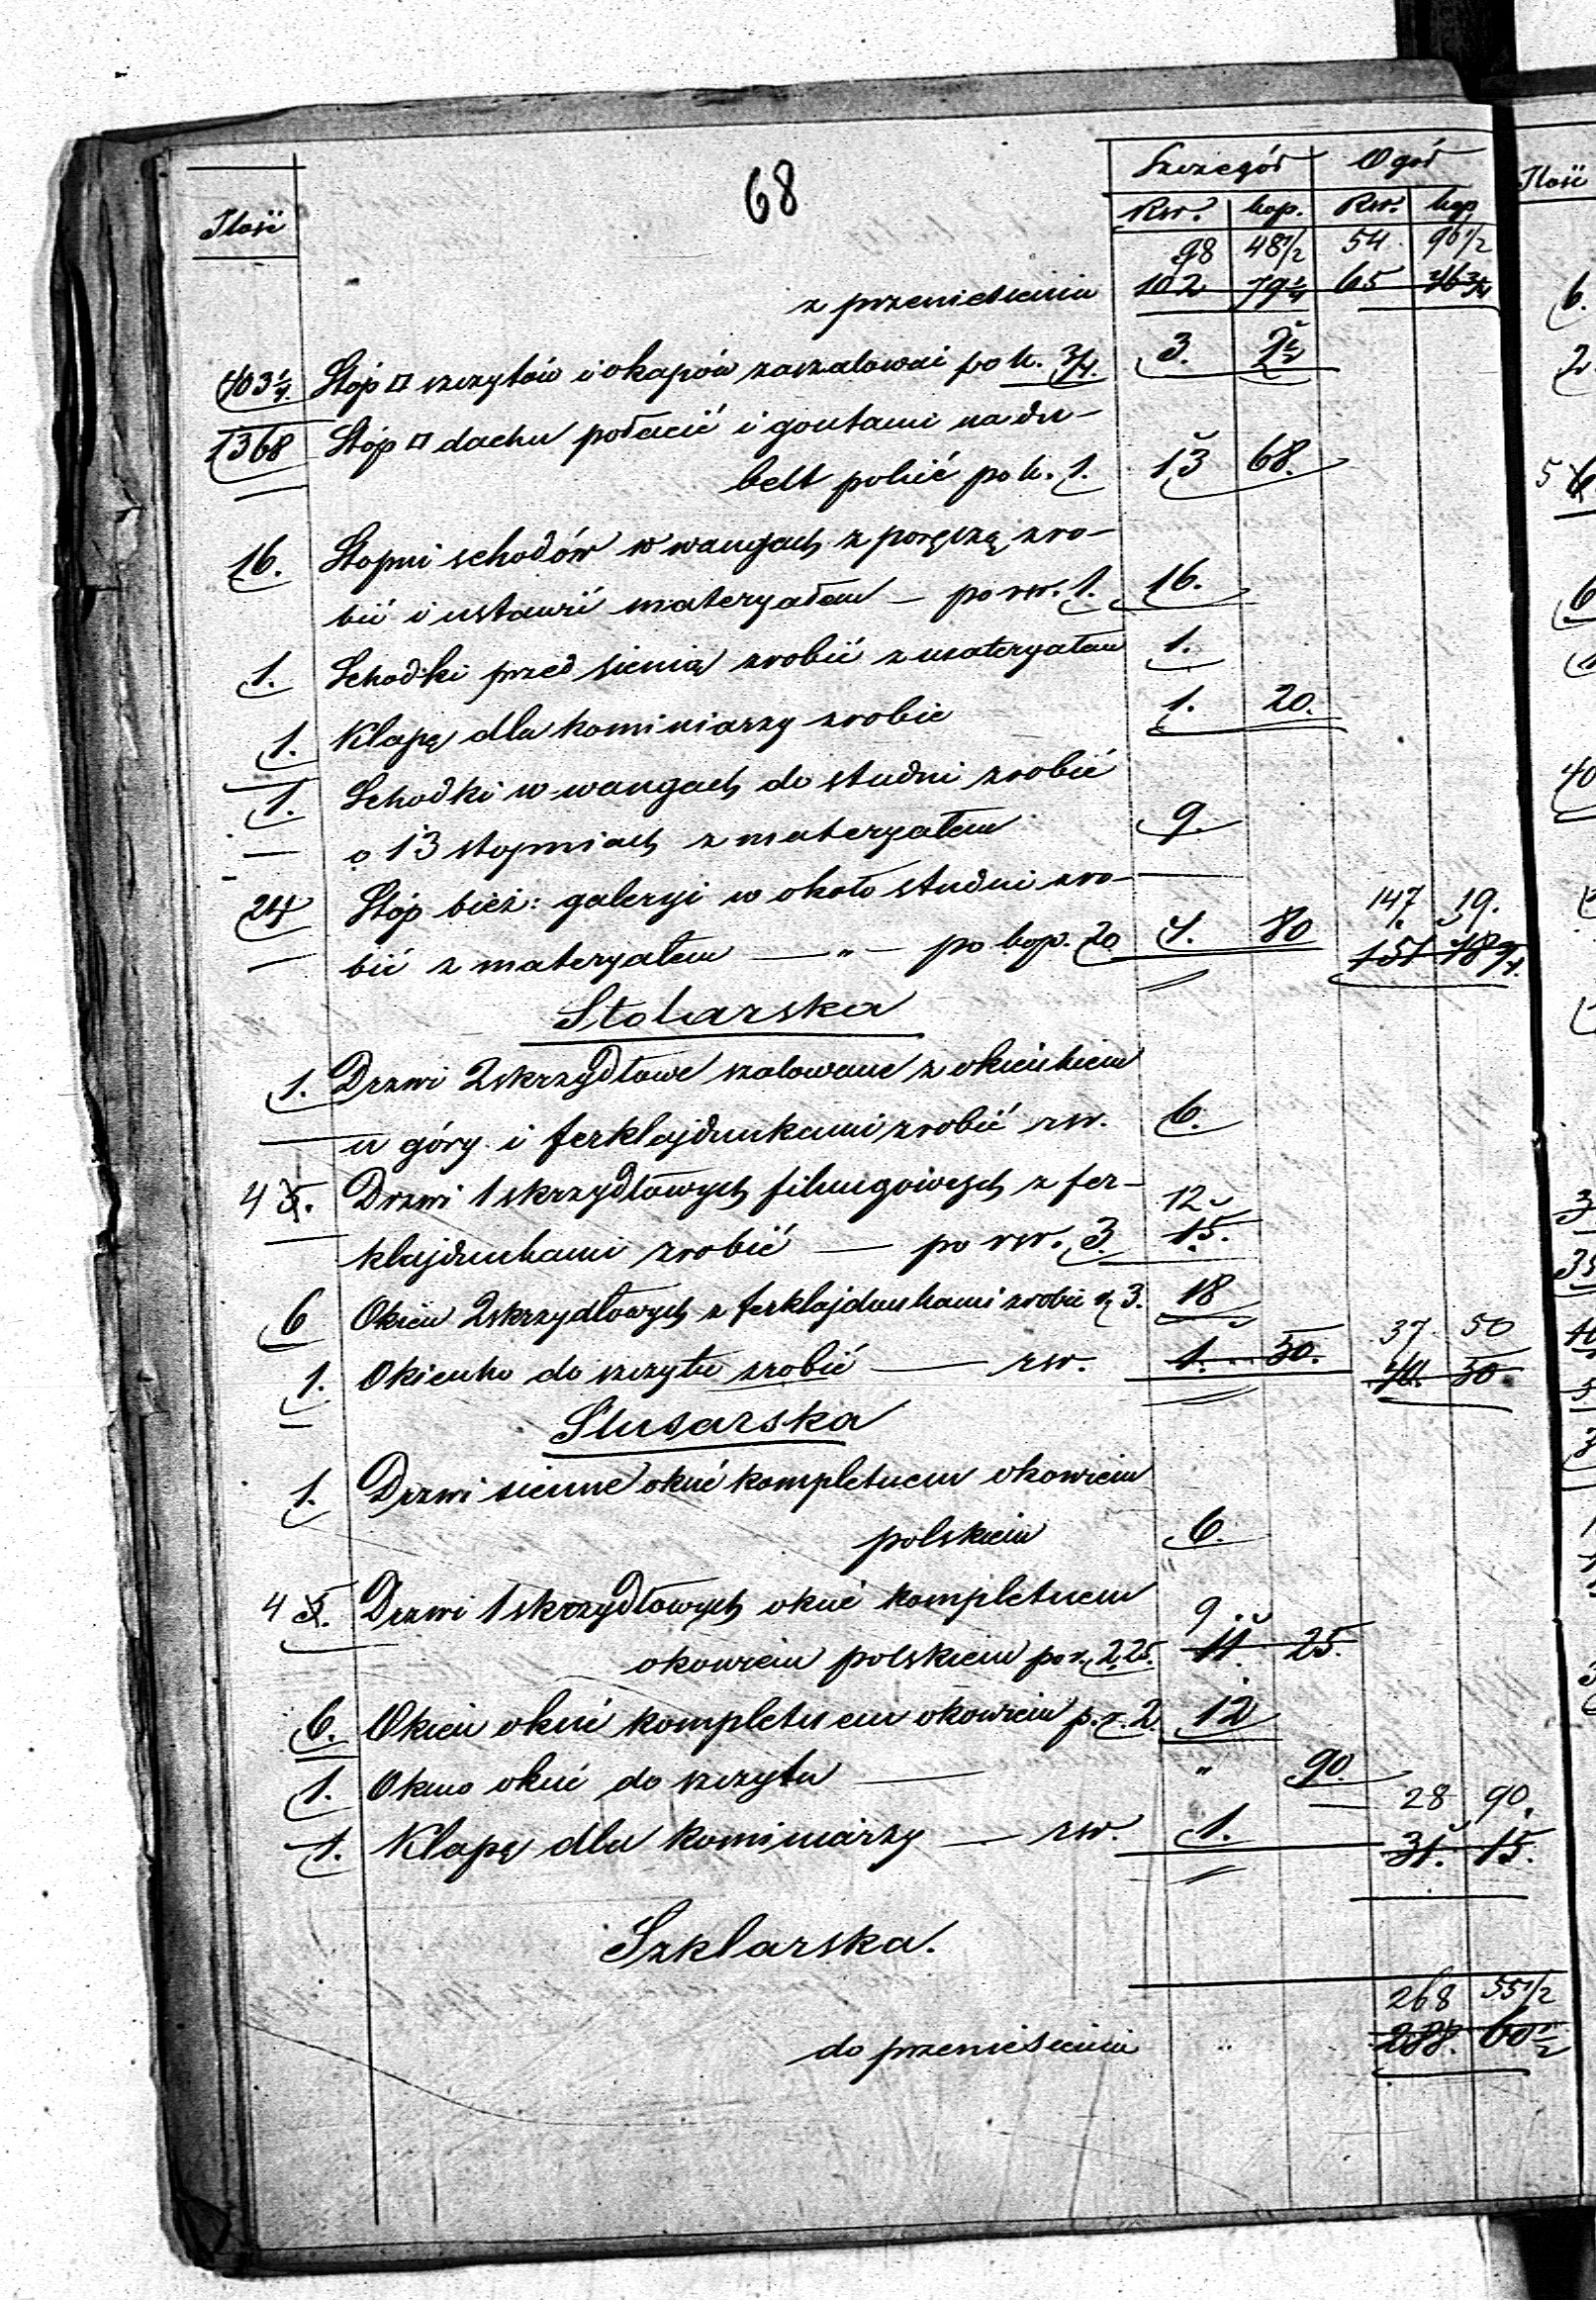 68
Ilość
Szczegół Ogół
Rsr. kop. Rsr. kop
98 48 1/2 54 96 1/2
z przeniesienia 102 79 1/4 65 46 3/4
403 1/4. Stóp □ szczytów i okapów zaszalować po k. 3/4. 3. 2 1/2
1368 Stóp □ dachu połacić i gontami na du-
belt pobić po k. 1. 13 68.
16. Stopni schodów w wangach z poręczą zro-
bić i ustawić materyałem — po rsr. 1. 16.
1. Schodki przed sienią zrobić z materyałem 1.
1. Klapę dla kominiarzy zrobić 1. 20.
1. Schodki w wangach do studni zrobić
o 13 stopniach z materyałem 9.
24 Stóp bież: galeryi w około studni zro-
147. 19.
bić z materyałem — " — po kop. 20 4. 80 151 48 3/4.
Stolarska
1. Drzwi 2skrzydłowe szalowane z okienkiem
u góry i ferklajdunkami zrobić rsr. 6.
4 5. Drzwi 1skrzydłowych filungowych z fer-
12
klajdunkami zrobić — po rsr. 3. 15.
6 Okien 2skrzydłowych z ferklajdunkami zrobić r. 3. 18
37 50
1. Okienko do szczytu zrobić — rsr. 1. 50. 40. 50
Slusarska
1. Drzwi sienne okuć kompletnem okowiem
polskiem 6.
4 5. Drzwi 1skrzydłowych okuć kompletnem
9
okowiem polskiem po r. 2,25. 11. 25.
6. Okien okuć kompletnem okowiem p. r. 2. 12
1. Okno okuć do szczytu — " 90.
28 90.
1. Klapę dla kominiarzy — rsr. 1. 31. 15.
Szklarska.
268 55 1/2
do przeniesienia " 288. 60 1/2